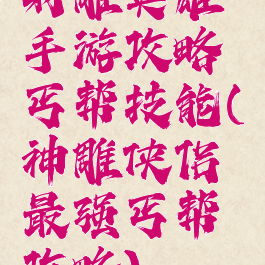 射雕英雄
手游攻略
丐帮技能(
神雕侠侣
最强丐帮
攻略)